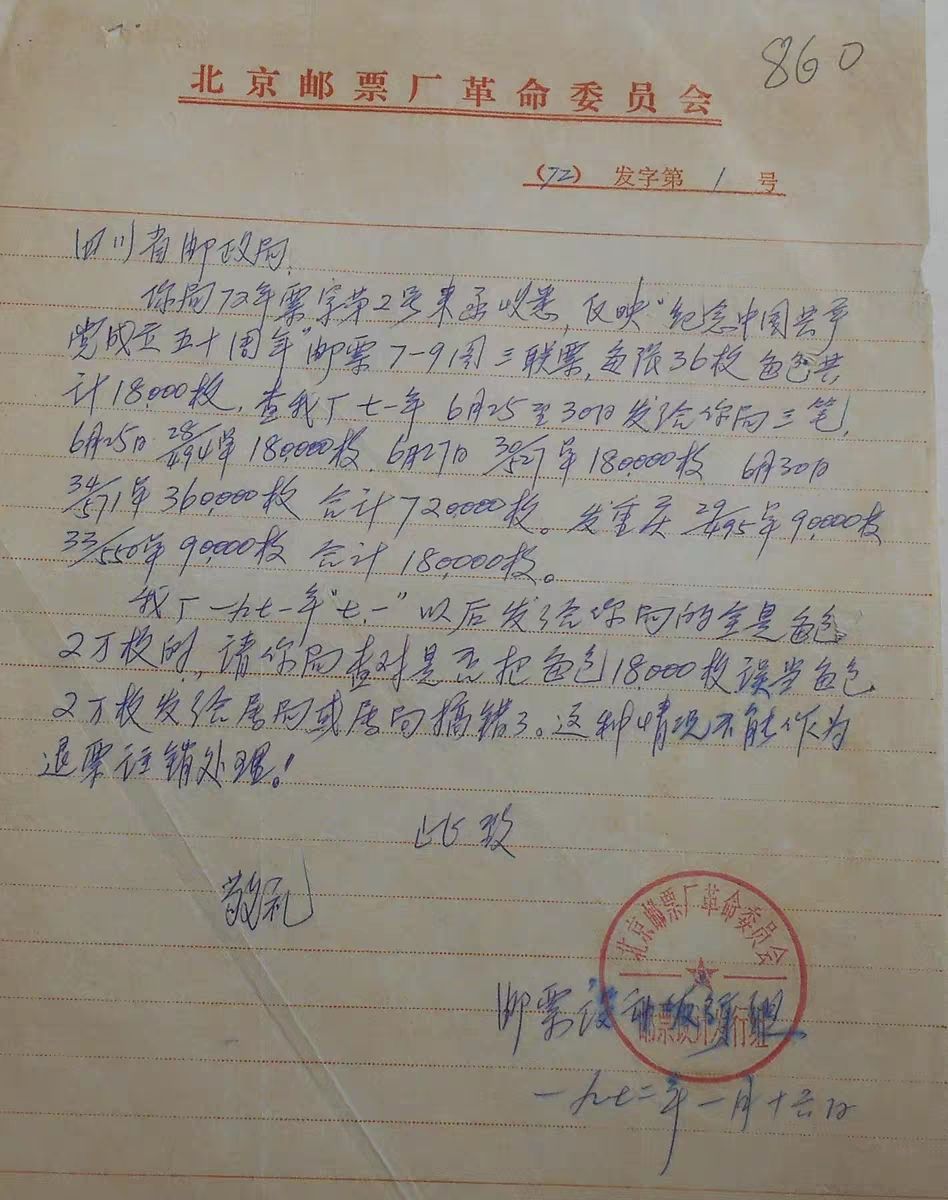 860
北京邮票厂革命委员会
(72) 发字第 1 号
四川省邮政局,
你局72年票字第2号来函收悉, 反映"纪念中国共产
党成立五十周年"邮票7-9图三联票, 每张36枚每包共
计18,000枚, 查我厂七一年 6月25至30日发给你局三笔,
6月25日 28/494单 180000枚, 6月27日 30/527单 180000枚 6月30日
34/571单 360,000枚 合计720000枚。发重庆 29/495单 90,000枚
33/550单 90000枚 合计 180,000枚。
我厂一九七一年"七·一"以后发给你局的全是每包
2万枚的, 请你局查对是否把每包18,000枚误当每包
2万枚发给属局或属局搞错了。这种情况不能作为
退票注销处理。!
此致
敬礼
北京邮票厂革命委员会
邮票设计发行组
邮票设计发行组
一九七二年一月十六日